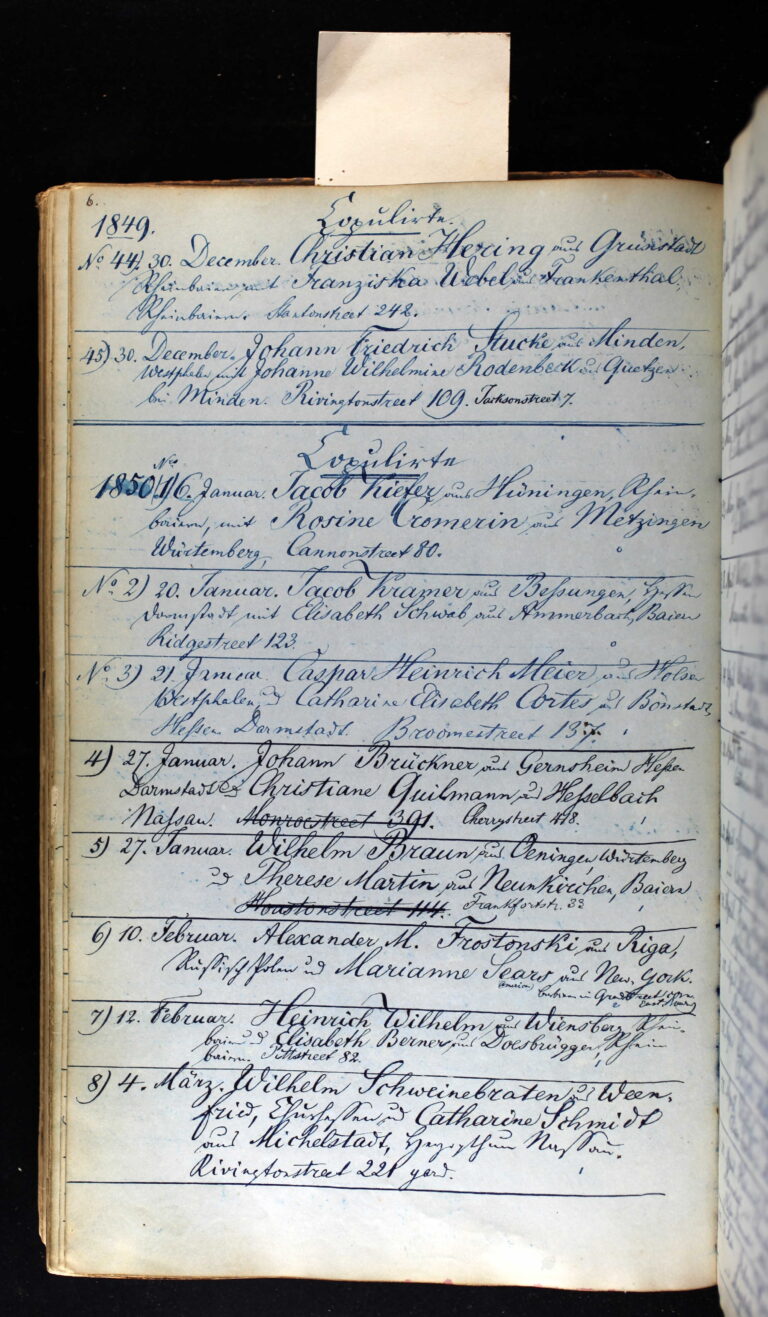 6.
1849.
Copulirte.
No 44) 30. December. Christian Hering aus Grünstadt
Rheinbaiern mit Franziska Webel aus Frankenthal,
Rheinbaiern. Stantonstreet 242.
45) 30. December. Johann Friedrich Stucke aus Minden,
Westphalen mit Johanne Wilhelmine Rodenbeck aus Quetzen
bei Minden. Rivingtonstreet 109. Jacksonstreet 7.
Copulirte
No
1850 1) 6. Januar. Jacob Kiefer aus Hüningen, Rhein-
baiern, mit Rosine Cromerin aus Metzingen
Würtemberg, Cannonstreet 80.
No 2) 20. Januar. Jacob Kramer aus Beßungen, Hessen
Darmstadt mit Elisabeth Schwab aus Ammerbach, Baiern
Ridgestreet 123.
No 3) 21. Januar. Caspar Heinrich Meier, aus Holsen
Westphalen, u Catharine Elisabeth Cortes aus Bönstadt,
Hessen Darmstadt. Broomestreet 137.
4) 27. Januar. Johann Brückner aus Gernsheim Heßen
Darmstadt u Christiane Guilmann, aus Heßelbach
Nassau. Monroestreet 391. Cherrystreet 418.
5) 27. Januar. Wilhelm Braun, aus Oeningen, Würtemberg
u Therese Martin, aus Neunkirchen, Baiern
Houstonstreet 114. Frankfortstr. 33
6) 10. Februar. Alexander M. Frostonski aus Riga,
Rußisch Polen u Marianne Sears aus New York.
7) 12. Februar. Heinrich Wilhelm aus Wiensberg, Rhein-
baiern u Elisabeth Berner aus Doesbrüggen, Rhein
baiern. Pittstreet 82.
8) 4. März. Wilhelm Schweinebraten, aus Ween-
fried, Churhessen u Catharine Schmidt
aus Michelstadt, Herzogthum Nassau.
Rivingtonstreet 221 yard.